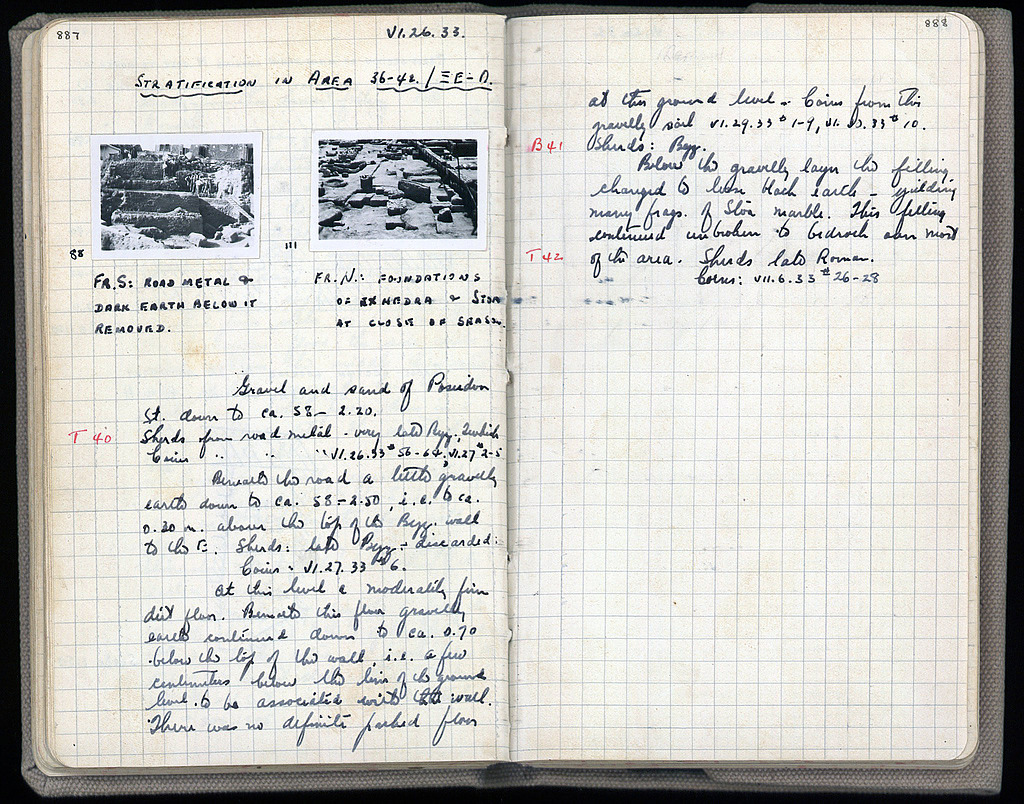 887
VI.26.33.
STRATIFICATION IN AREA 36-42/ΞE-Π.
88
111
FR.S: ROAD METAL &
DARK EARTH BELOW IT
REMOVED.
FR.N.: FOUNDATIONS
OF EXHEDRA & STOA
AT CLOSE OF SEASON.
Gravel and sand of Poseidon
St. down to ca. 58 – 2.20.
T 40
Sherds from road metal - very late Byz.,
Coins " " " VI.26.33 # 56-64, VI.27 # 2-5
Beneath the road a little gravelly
earth down to ca. 58 – 2.50, i.e. to ca.
0.20 m. above the top of the Byz. wall
to the E. Sherds: late Byz. - discarded:
Coins: VI.27.33 # 6.
At this level a moderately firm
dirt floor. Beneath this floor gravelly
earth continued down to ca. 0.70
below the top of the wall, i.e. a few
centimeters below the line of the ground
level to be associated with the wall.
There was no definite packed floor
888
at this ground level. Coins from this
gravelly soil VI.29.33 # 1-9, # 10.
B 41
Sherds: Byz.
Below the gravelly layer the filling
changed to loose black earth – yielding
many frags. of Stoa marble. This filling
continued unbroken to bedrock over most
T 42
of the area. Sherds late Roman.
Coins: VII.6.33 # 26-28